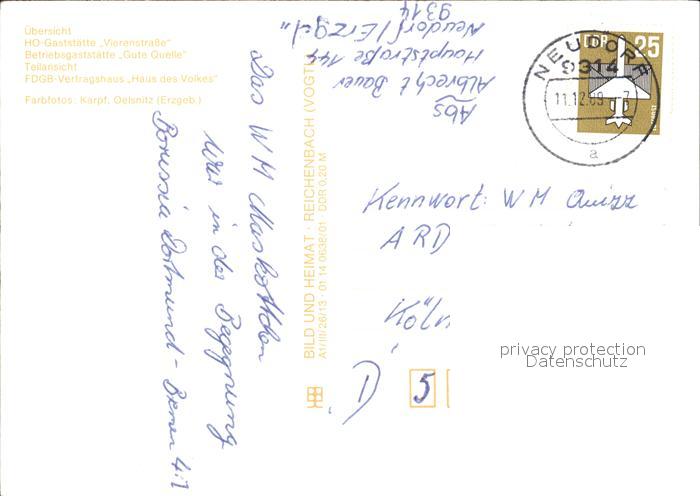 Übersicht
HO-Gaststätte „Vierenstraße"
Betriebsgaststätte „Gute Quelle"
Teilansicht
FDGB-Vertragshaus „Haus des Volkes"
Farbfotos: Karpf, Oelsnitz (Erzgeb.)
Das WM Maskottchen
war in der Begegnung
Borussia Dortmund - Bremen 4:1
BILD UND HEIMAT · REICHENBACH (VOGTL
A1/III/26/13 · 01 14 0638/01 · DDR 0,20 M
Abs
Albrecht Bauer
Hauptstraße 144
Neudorf/Erzgeb."
9314
DDR 25
NEUDORF
9314
11.12.89 - 7
a
Kennwort: WM Quizz
ARD
Köln
D 5
privacy protection
Datenschutz